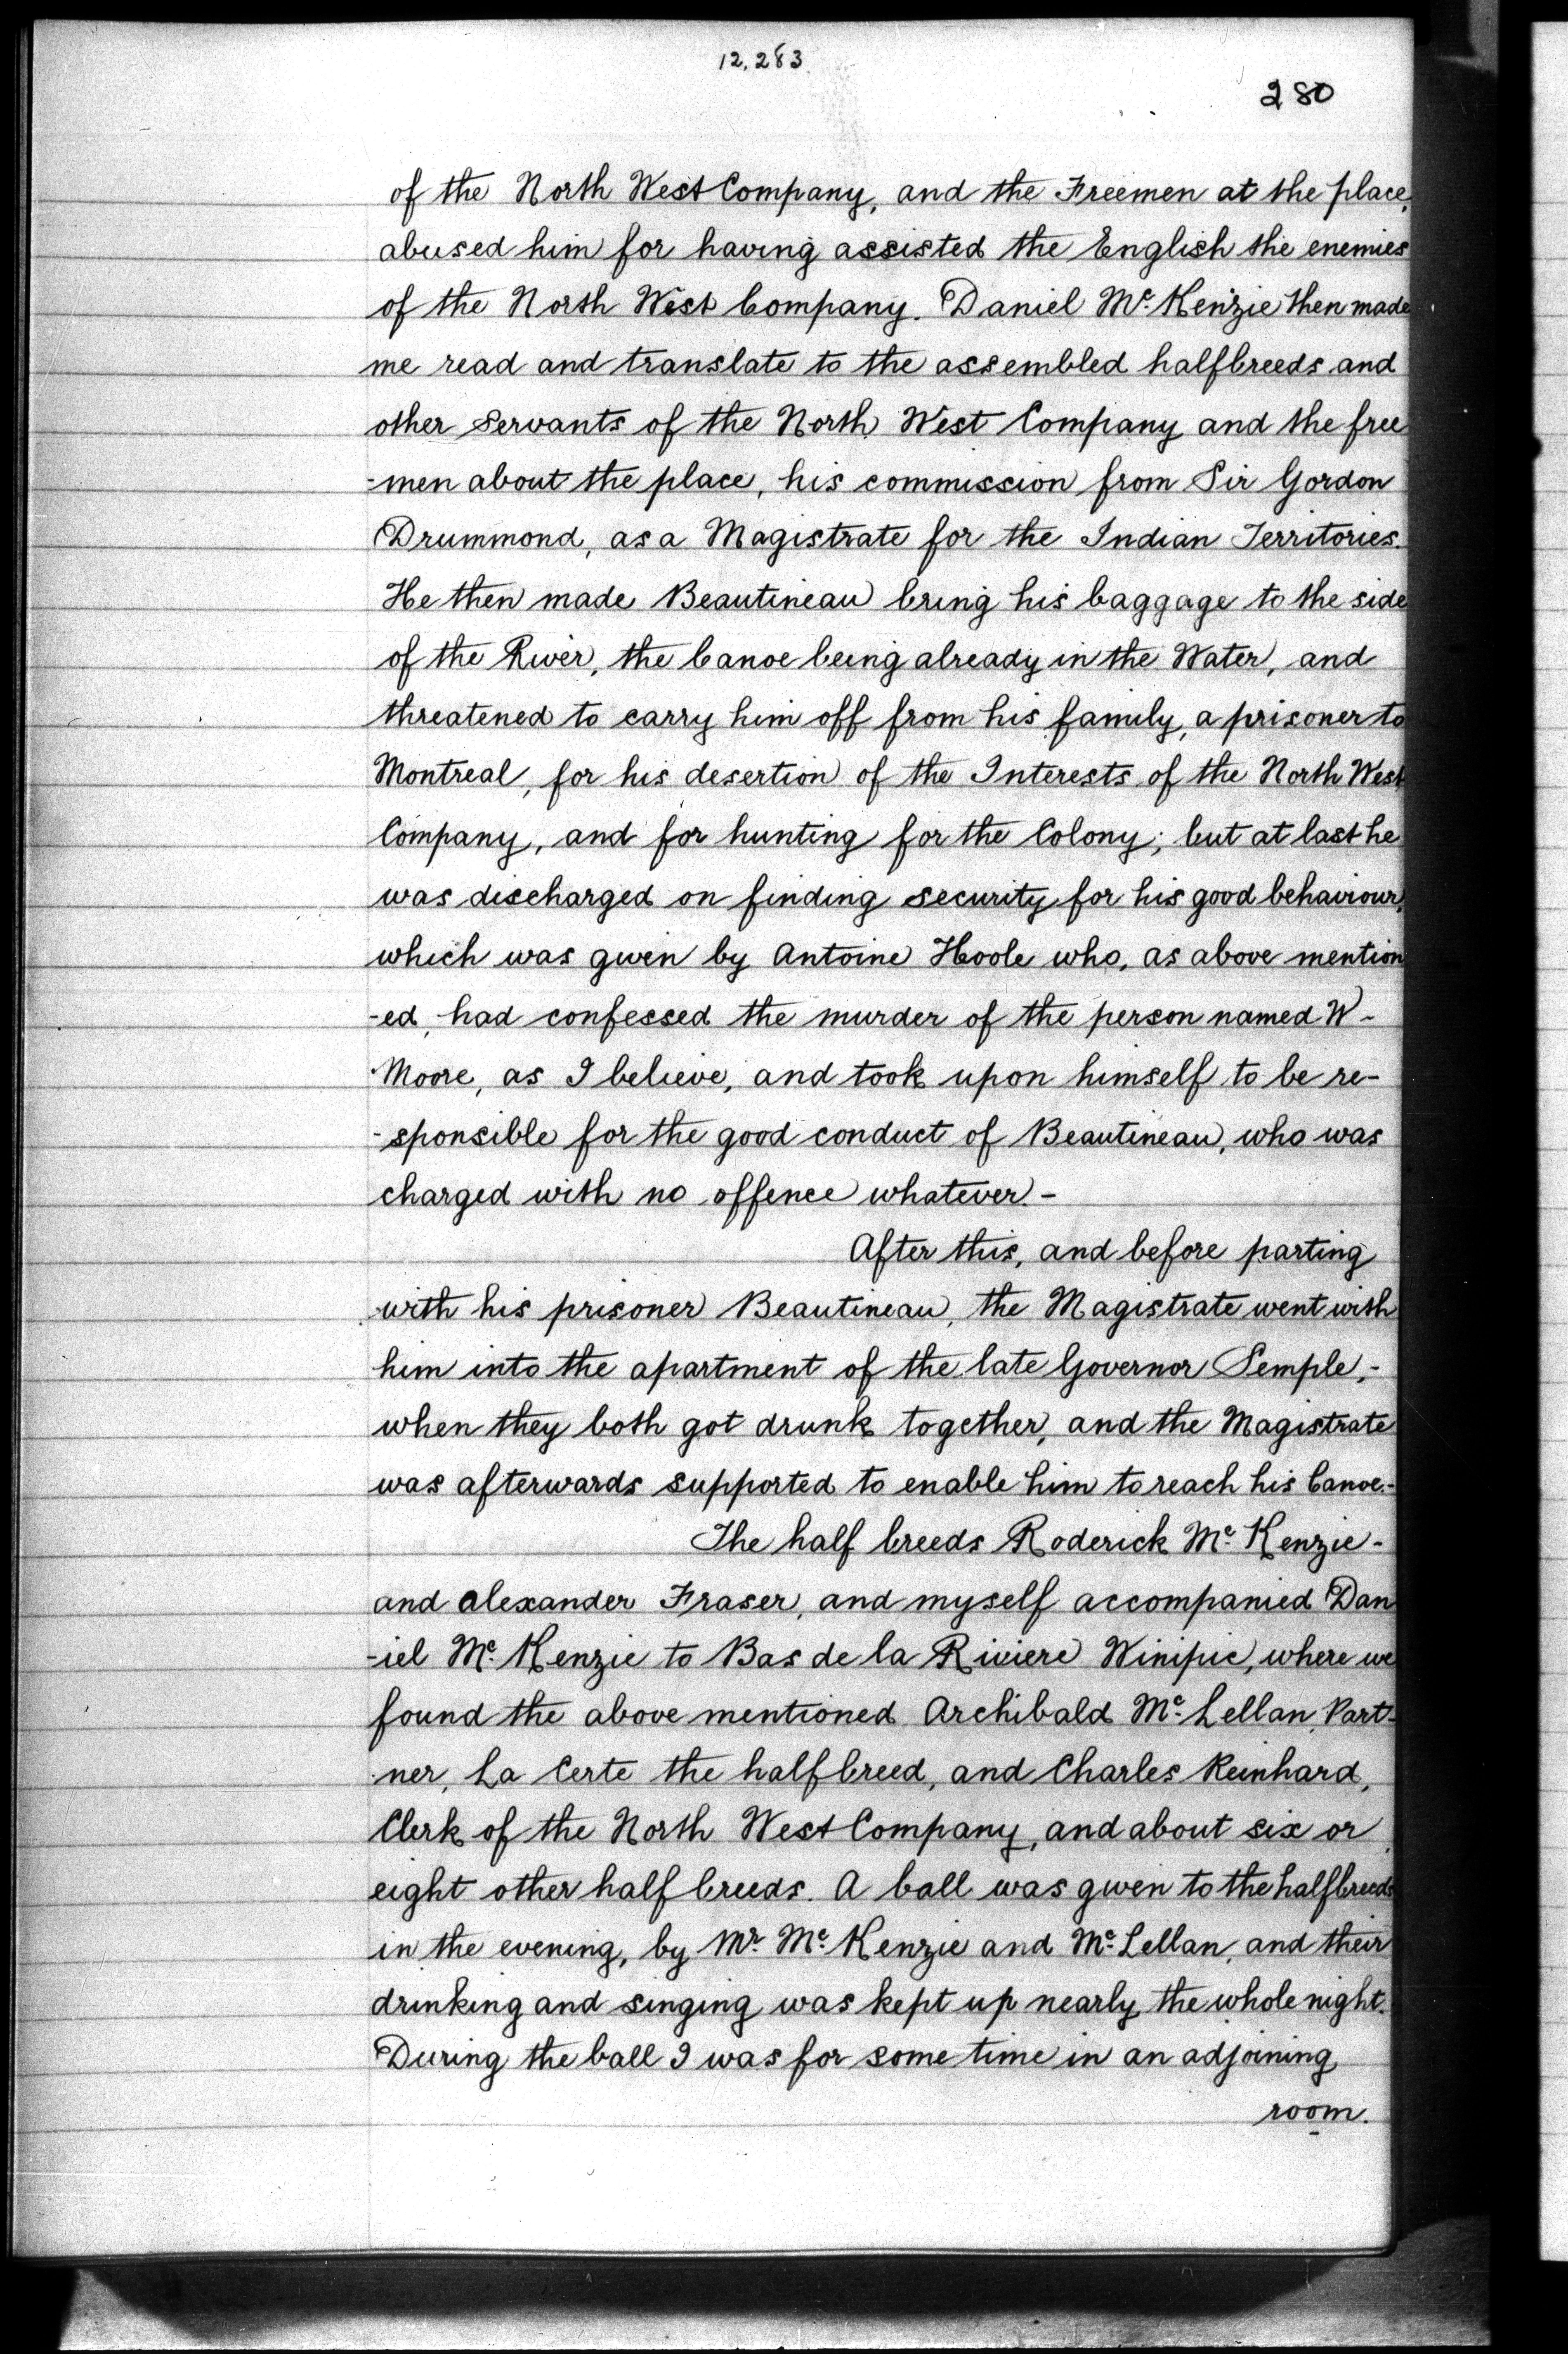 12.283
280
of the North West Company, and the Freemen at the place,
abused him for having assisted the English the enemies
of the North West Company. Daniel Mc Kenzie then made
me read and translate to the assembled halfbreeds and
other Servants of the North West Company and the free
-men about the place, his commission from Sir Gordon
Drummond, as a Magistrate for the Indian Territories.
He then made Beautineau bring his baggage to the side
of the River, the Canoe being already in the Water, and
threatened to carry him off from his family, a prisoner to
Montreal, for his desertion of the Interests of the North West
Company, and for hunting for the Colony; but at last he
was discharged on finding security for his good behaviour,
which was given by Antoine Hoole who, as above mention
-ed, had confessed the murder of the person named W-
Moore, as I believe, and took upon himself to be re-
-sponsible for the good conduct of Beautineau, who was
charged with no offence whatever.-
After this, and before parting
with his prisoner Beautineau, the Magistrate went with
him into the apartment of the late Governor Semple,-
when they both got drunk together, and the Magistrate
was afterwards supported to enable him to reach his Canoe.-
The half breeds Roderick Mc Kenzie-
and Alexander Fraser, and myself accompanied Dan
-iel Mc Kenzie to Bas de la Riviere Winipic, where we
found the above mentioned Archibald Mc Lellan, Part-
ner, La Certe the halfbreed, and Charles Reinhard,
Clerk of the North West Company, and about six or
eight other half breeds. A ball was given to the halfbreeds
in the evening, by Mr Mc Kenzie and Mc Lellan, and their
drinking and singing was kept up nearly the whole night.
During the ball I was for some time in an adjoining
room.